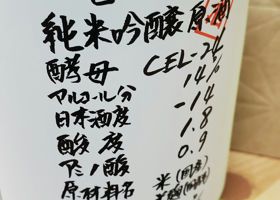 純米吟醸原酒
酵母 CEL-24
アルコール分 14%
日本酒度 -14
酸度 1.8
アミノ酸 0.9
原材料名 米(国産)
米麹(国産米)